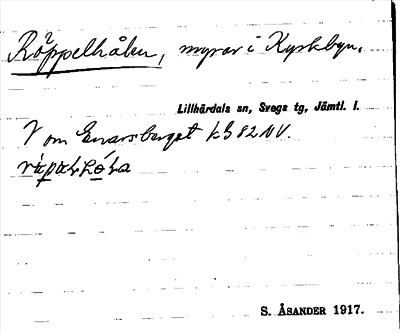 Röppelhålen, myrar i Kyrkbyn.
Lillhärdals sn, Svegs tg, Jämtl. l.
V om Enarsberget kb 82 NV.
S. ÅSANDER 1917.